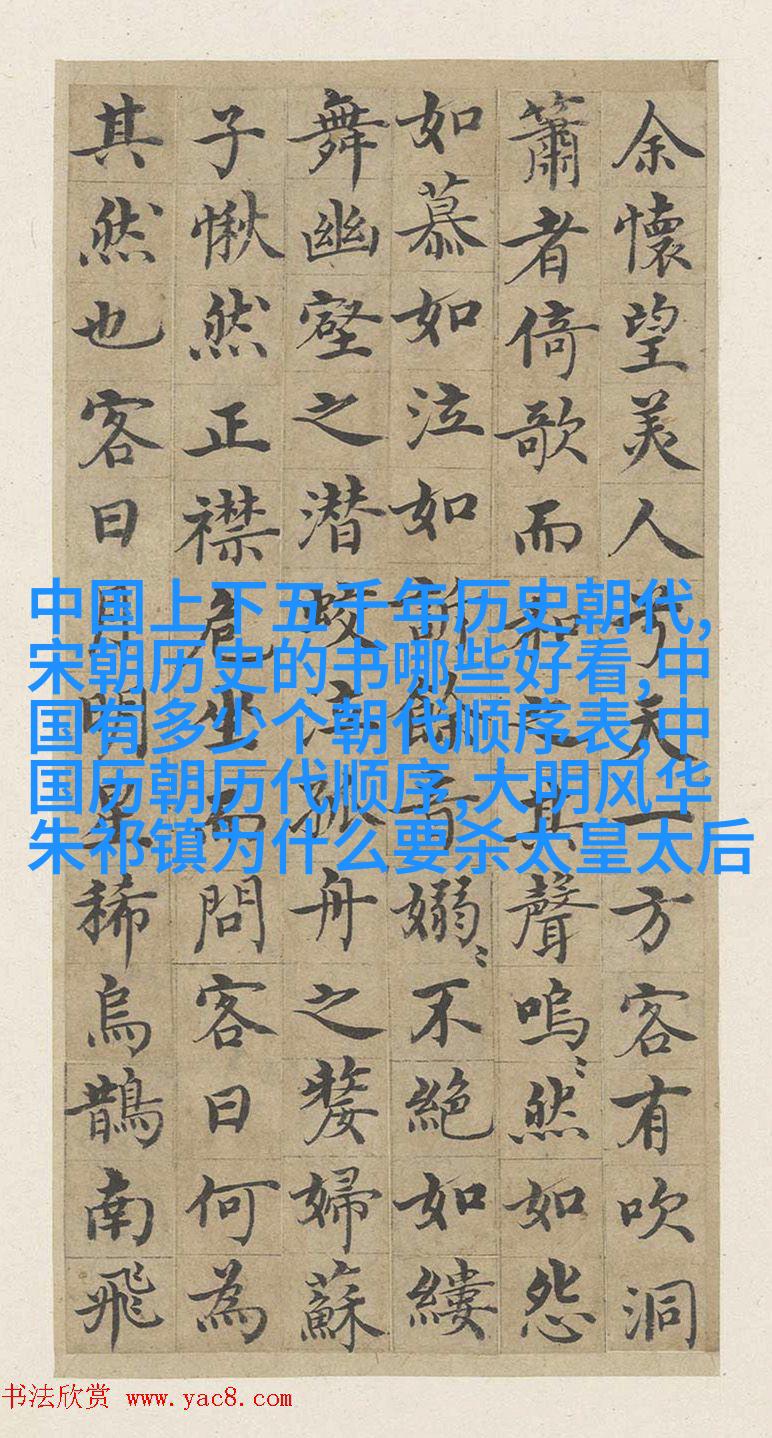 余懷望美人兮天一方客有吹洞
簫者倚歌而和之其聲嗚〻然如怨
如慕如泣如訴餘音嫋〻不絕如縷
舞幽壑之潜蛟泣孤舟之嫠婦蘇
子愀然正襟危坐而問客曰何為
其然也客曰月明星稀烏鵲南飛
中国上下五千年历史朝代,
宋朝历史的书哪些好看,中
国有多少个朝代顺序表,中
国历朝历代顺序,大明风华
朱祁镇为什么要杀太皇太后
书法欣赏 www.yac8.com